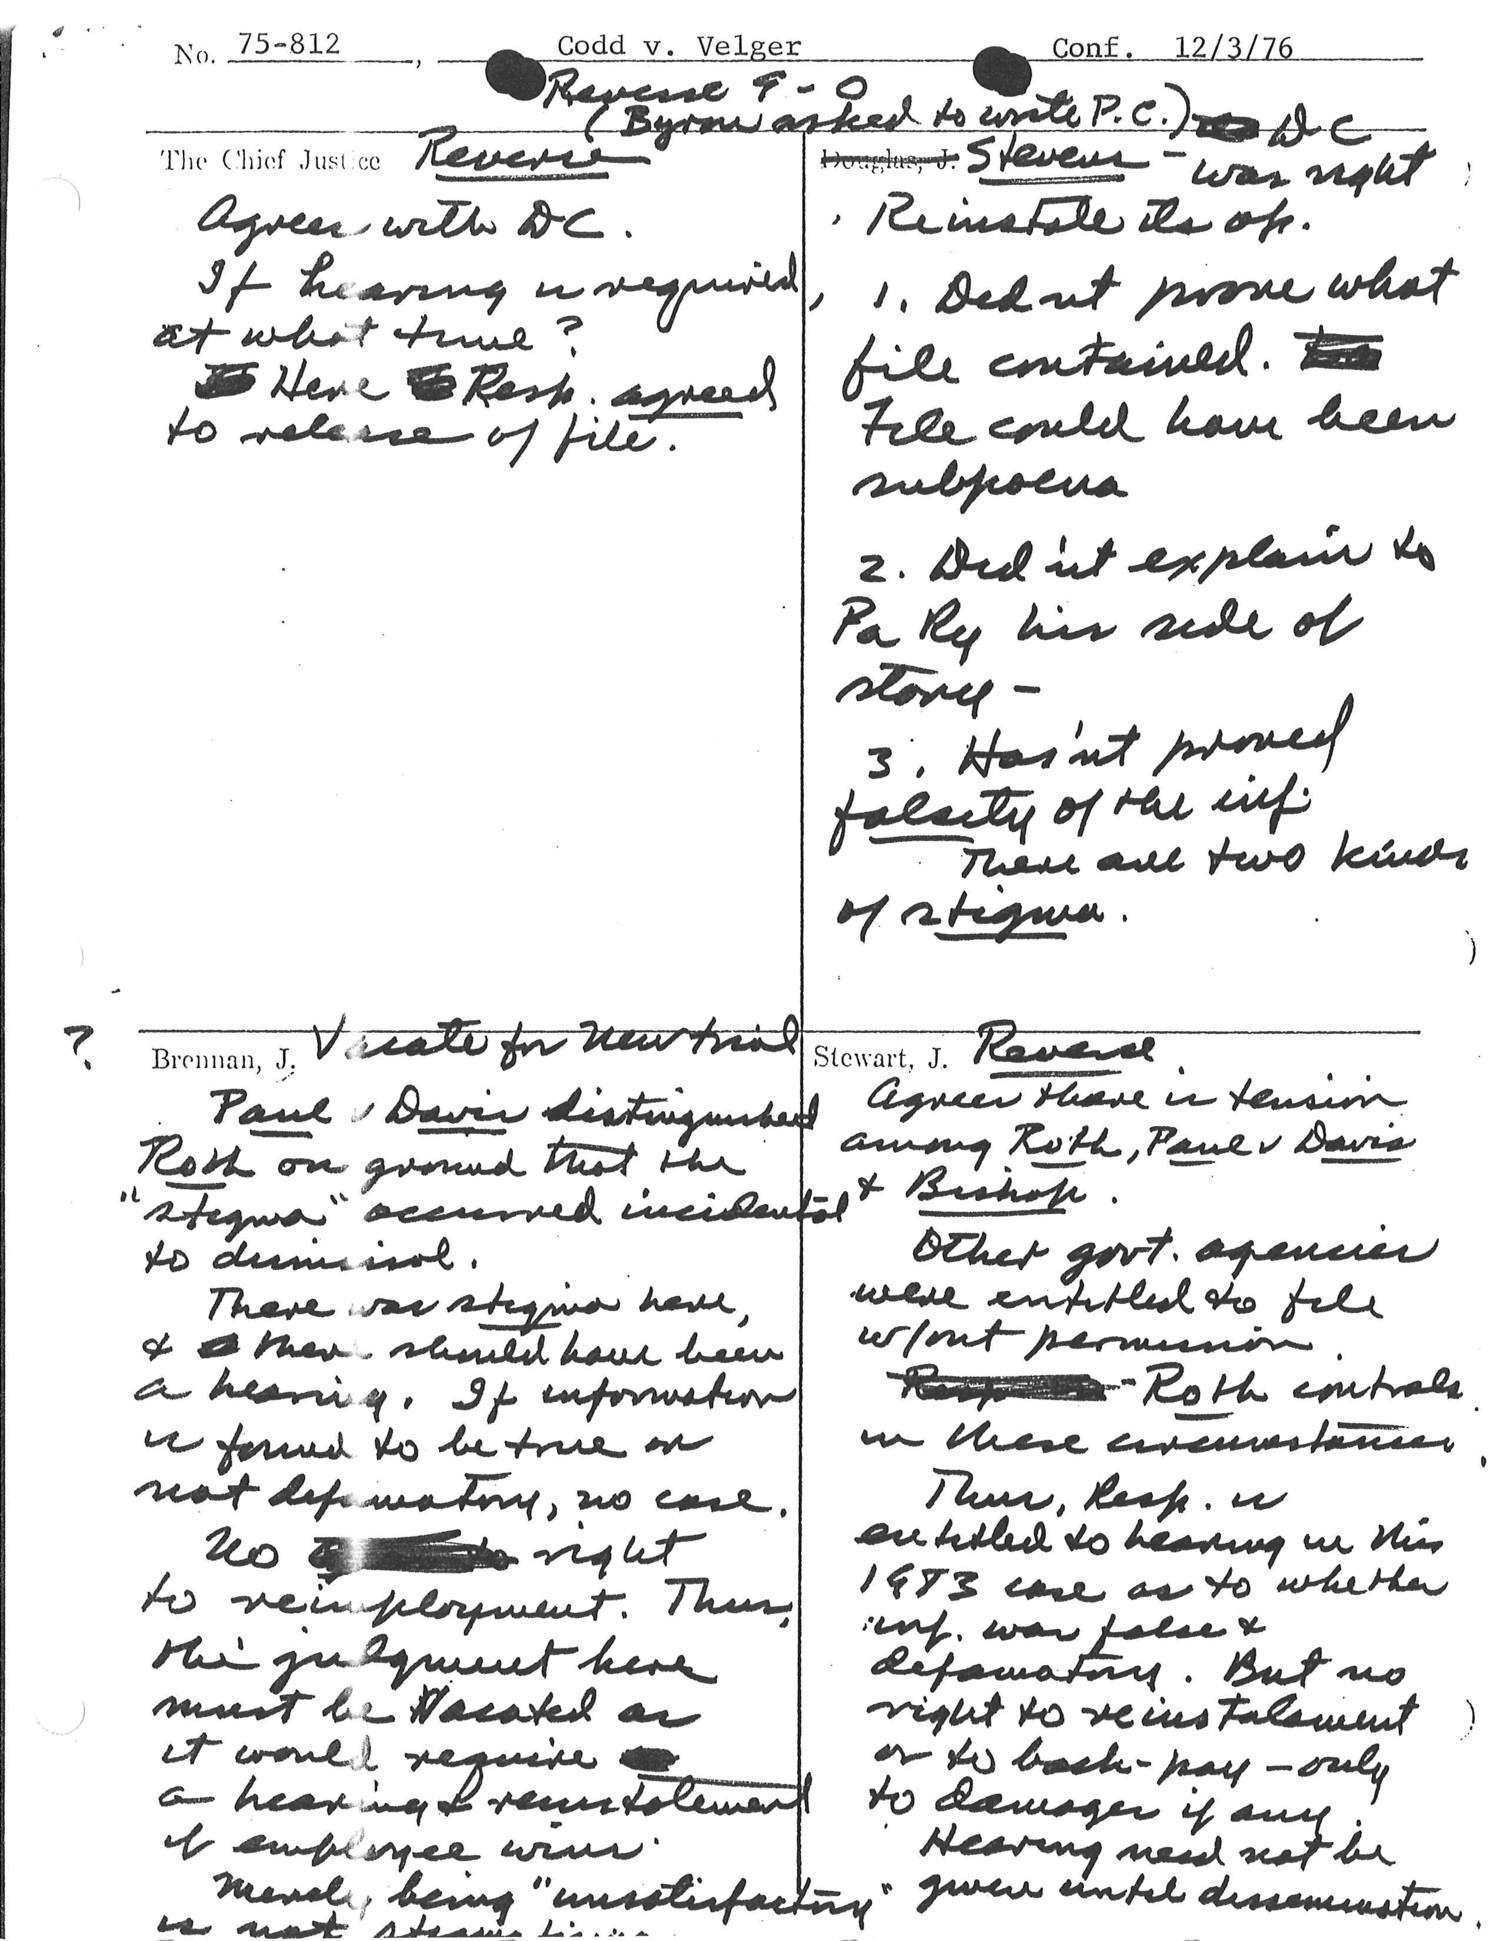 No. 75-812, Codd v. Velger Conf. 12/3/76
Reverse 9-0
(Byron asked to write P.C.)
The Chief Justice Reverse
Agrees with DC.
If hearing is required,
at what time?
Here Resp. agreed
to release of file.
Douglas, J. Stevens - DC
was right
Reinstate its op.
1. Didn't prove what
file contained.
File could have been
subpoena
2. Did'nt explain to
Pa Ry his side of
story -
3. Has'nt proved
falsity of the inf.
There are two kinds
of stigma.
? Brennan, J. Vacate for New trial
Paul v Davis distinguished
Roth on ground that the
"stigma" occurred incidental
to dismissal.
There was stigma here,
& there should have been
a hearing. If information
is found to be true or
not defamatory, no case.
No right
to reimployment. Thus,
the judgment here
must be Vacated as
it would require
a hearing & reinstatement
if employee wins.
Merely being "unsatisfactory"
is not
Stewart, J. Reverse
Agrees there is tension
among Roth, Paul v Davis
& Bishop.
Other govt. agencies
were entitled to file
w/out permission.
- Roth controls
in these circumstances.
Thus, Resp. is
entitled to hearing in this
1983 case as to whether
inf. was false &
defamatory. But no
right to reinstatement
or to back-pay - only
to damages if any.
Hearing need not be
given until dissemination.